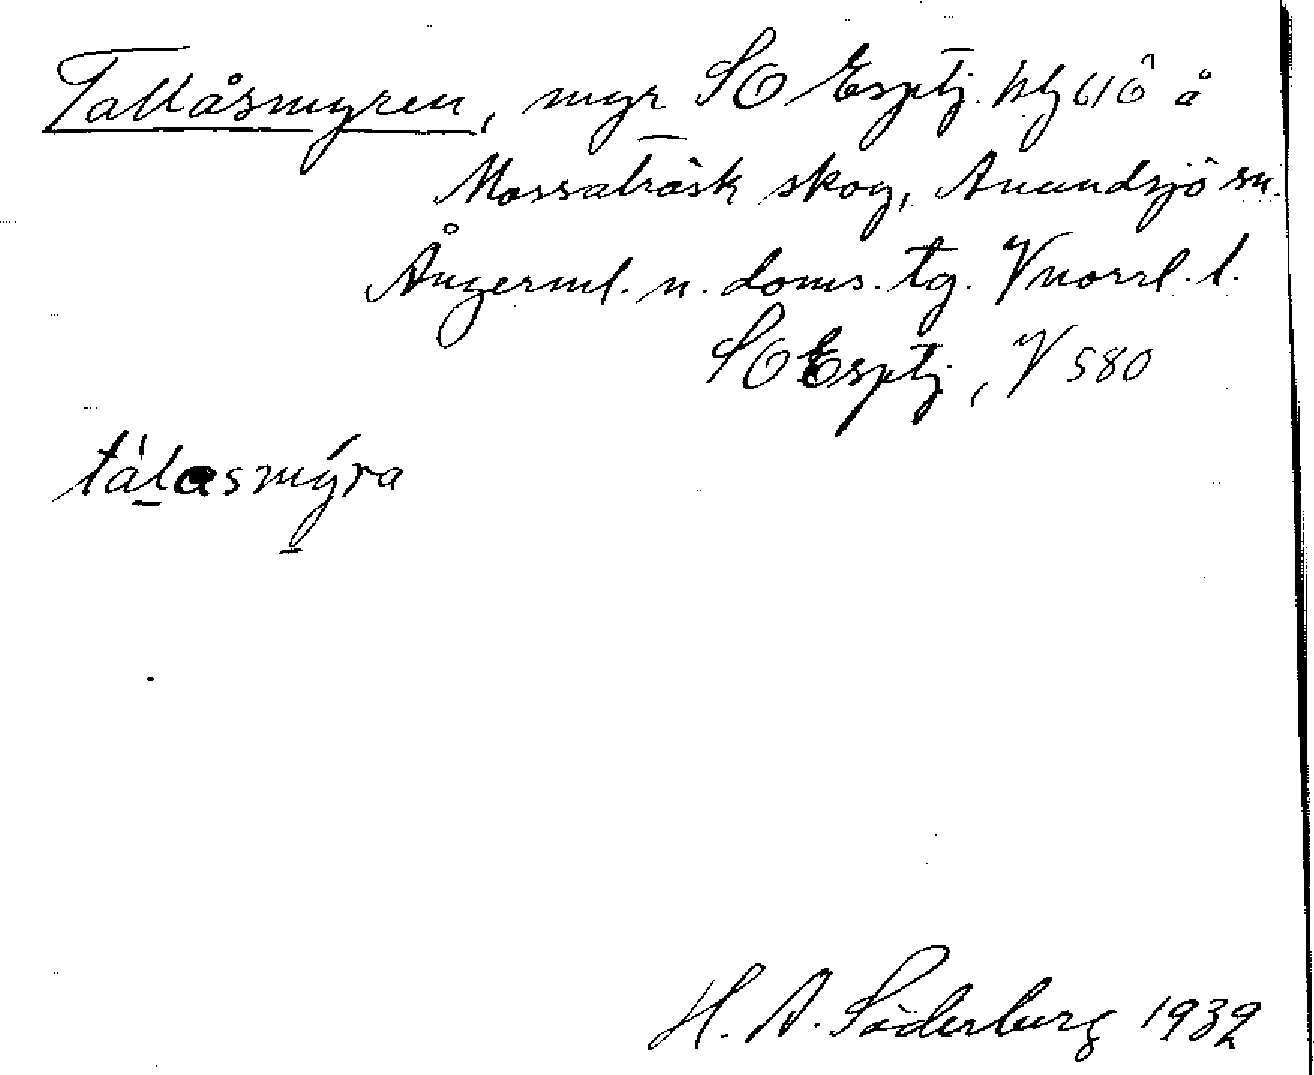 Tallåsmyren, myr SO Esptj. hg 616 å
Mossaträsk skog, Anundsjö sn.
Ångerml. n. doms. tg. Vnorrl. l.
SO Esptj, V 580
tálasmýra
H. A. Söderberg 1932